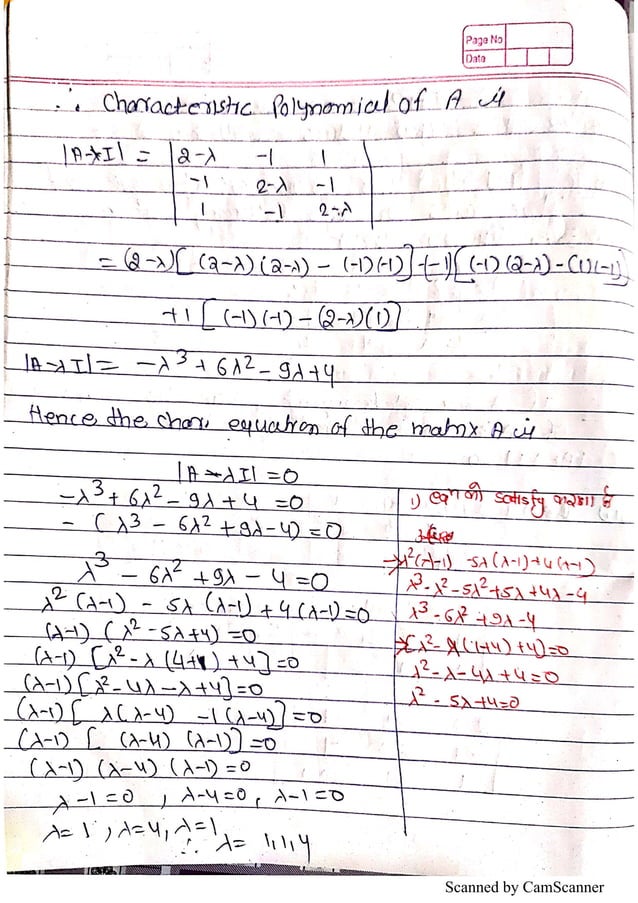 Page No
Date
∴ Characteristic Polynomial of A is
|A-λI| = | 2-λ -1 1 |
| -1 2-λ -1 |
| 1 -1 2-λ |
= (2-λ)[(2-λ)(2-λ) - (-1)(-1)] -(-1)[(-1)(2-λ) - (1)(-1)]
+1[(-1)(-1) - (2-λ)(1)]
|A-λI| = -λ³ + 6λ² - 9λ + 4
Hence the char. equation of the matrix A is
|A-λI| = 0
-λ³ + 6λ² - 9λ + 4 = 0
-(λ³ - 6λ² + 9λ - 4) = 0
λ³ - 6λ² + 9λ - 4 = 0
λ²(λ-1) - 5λ(λ-1) + 4(λ-1) = 0
(λ-1)(λ² - 5λ + 4) = 0
(λ-1)[λ² - λ(4+1) + 4] = 0
(λ-1)[λ² - 4λ - λ + 4] = 0
(λ-1)[λ(λ-4) - 1(λ-4)] = 0
(λ-1)[(λ-4)(λ-1)] = 0
(λ-1)(λ-4)(λ-1) = 0
λ-1=0, λ-4=0, λ-1=0
λ=1, λ=4, λ=1
∴ λ = 1,1,4
1) satisfy करता है
→ λ²(λ-1) - 5λ(λ-1) + 4(λ-1)
λ³ - λ² - 5λ² + 5λ + 4λ - 4
λ³ - 6λ² + 9λ - 4
[λ² - λ(1+4) + 4] = 0
λ² - λ - 4λ + 4 = 0
λ² - 5λ + 4 = 0
Scanned by CamScanner